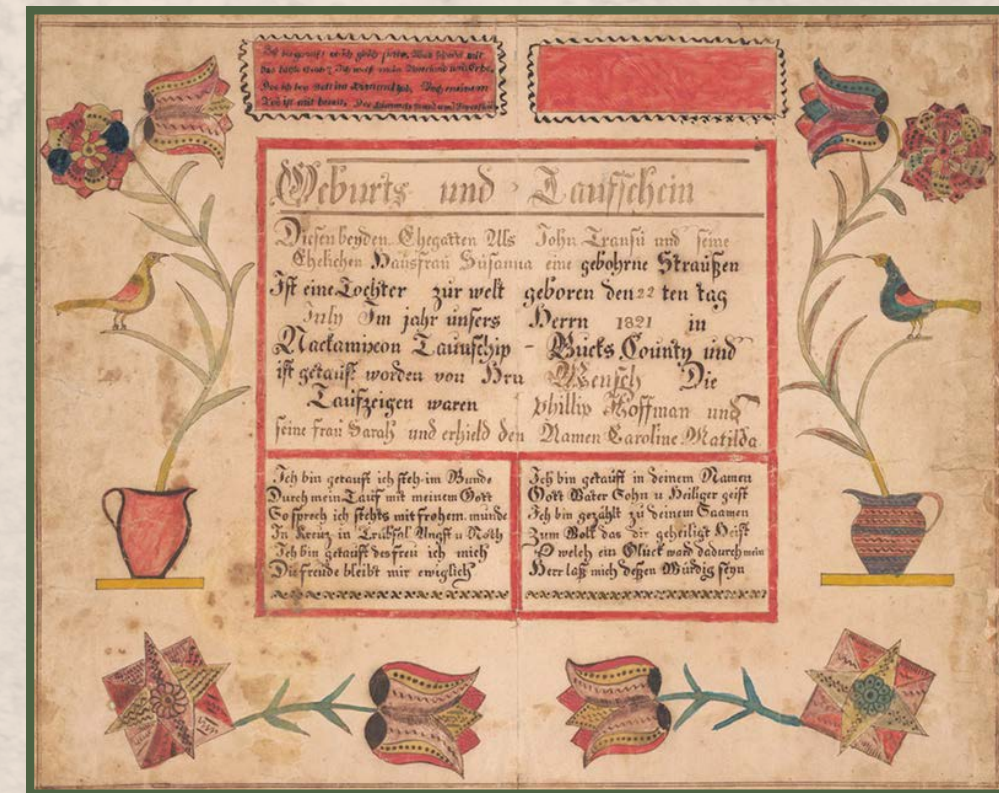 Ich bin getauft ob ich gleich sterbe, Was schadet mir
das kühle Grab? Ich weis mein Vaterland und Erbe,
Das ich bey Gott im Himmel hab, Nach meinem
Tod ist mir bereit, Des Himmels
Geburts und Taufschein
Diesen beyden Ehegatten Als John Transü und seine
Ehelichen Hausfrau Susanna eine gebohrne Straußen
Ist eine Tochter zür welt geboren den 22 ten tag
July Im jahr unsers Herrn 1821 in
Nackamixon Taunschip - Bucks County und
ist getauft worden von Hrn Mensch Die
Taufzeigen waren Phillip Hoffman und
seine frau Sarah und erhield den Namen Caroline Matilda
Ich bin getauft ich steh im Bunde
Durch mein Tauf mit meinem Gott
So sprech ich stehts mit frohem munde
In Kreuz in Trübsal Angst u Noth
Ich bin getauft des freu ich mich
Die freude bleibt mir ewiglich
Ich bin getauft in deinem Namen
Gott Vater Sohn u Heiliger geist
Ich bin gezählt zu deinem Saamen
Zum Volk das dir geheiligt Heist
O welch ein Glück ward dadurch mein
Herr laß mich deßen Würdig seyn